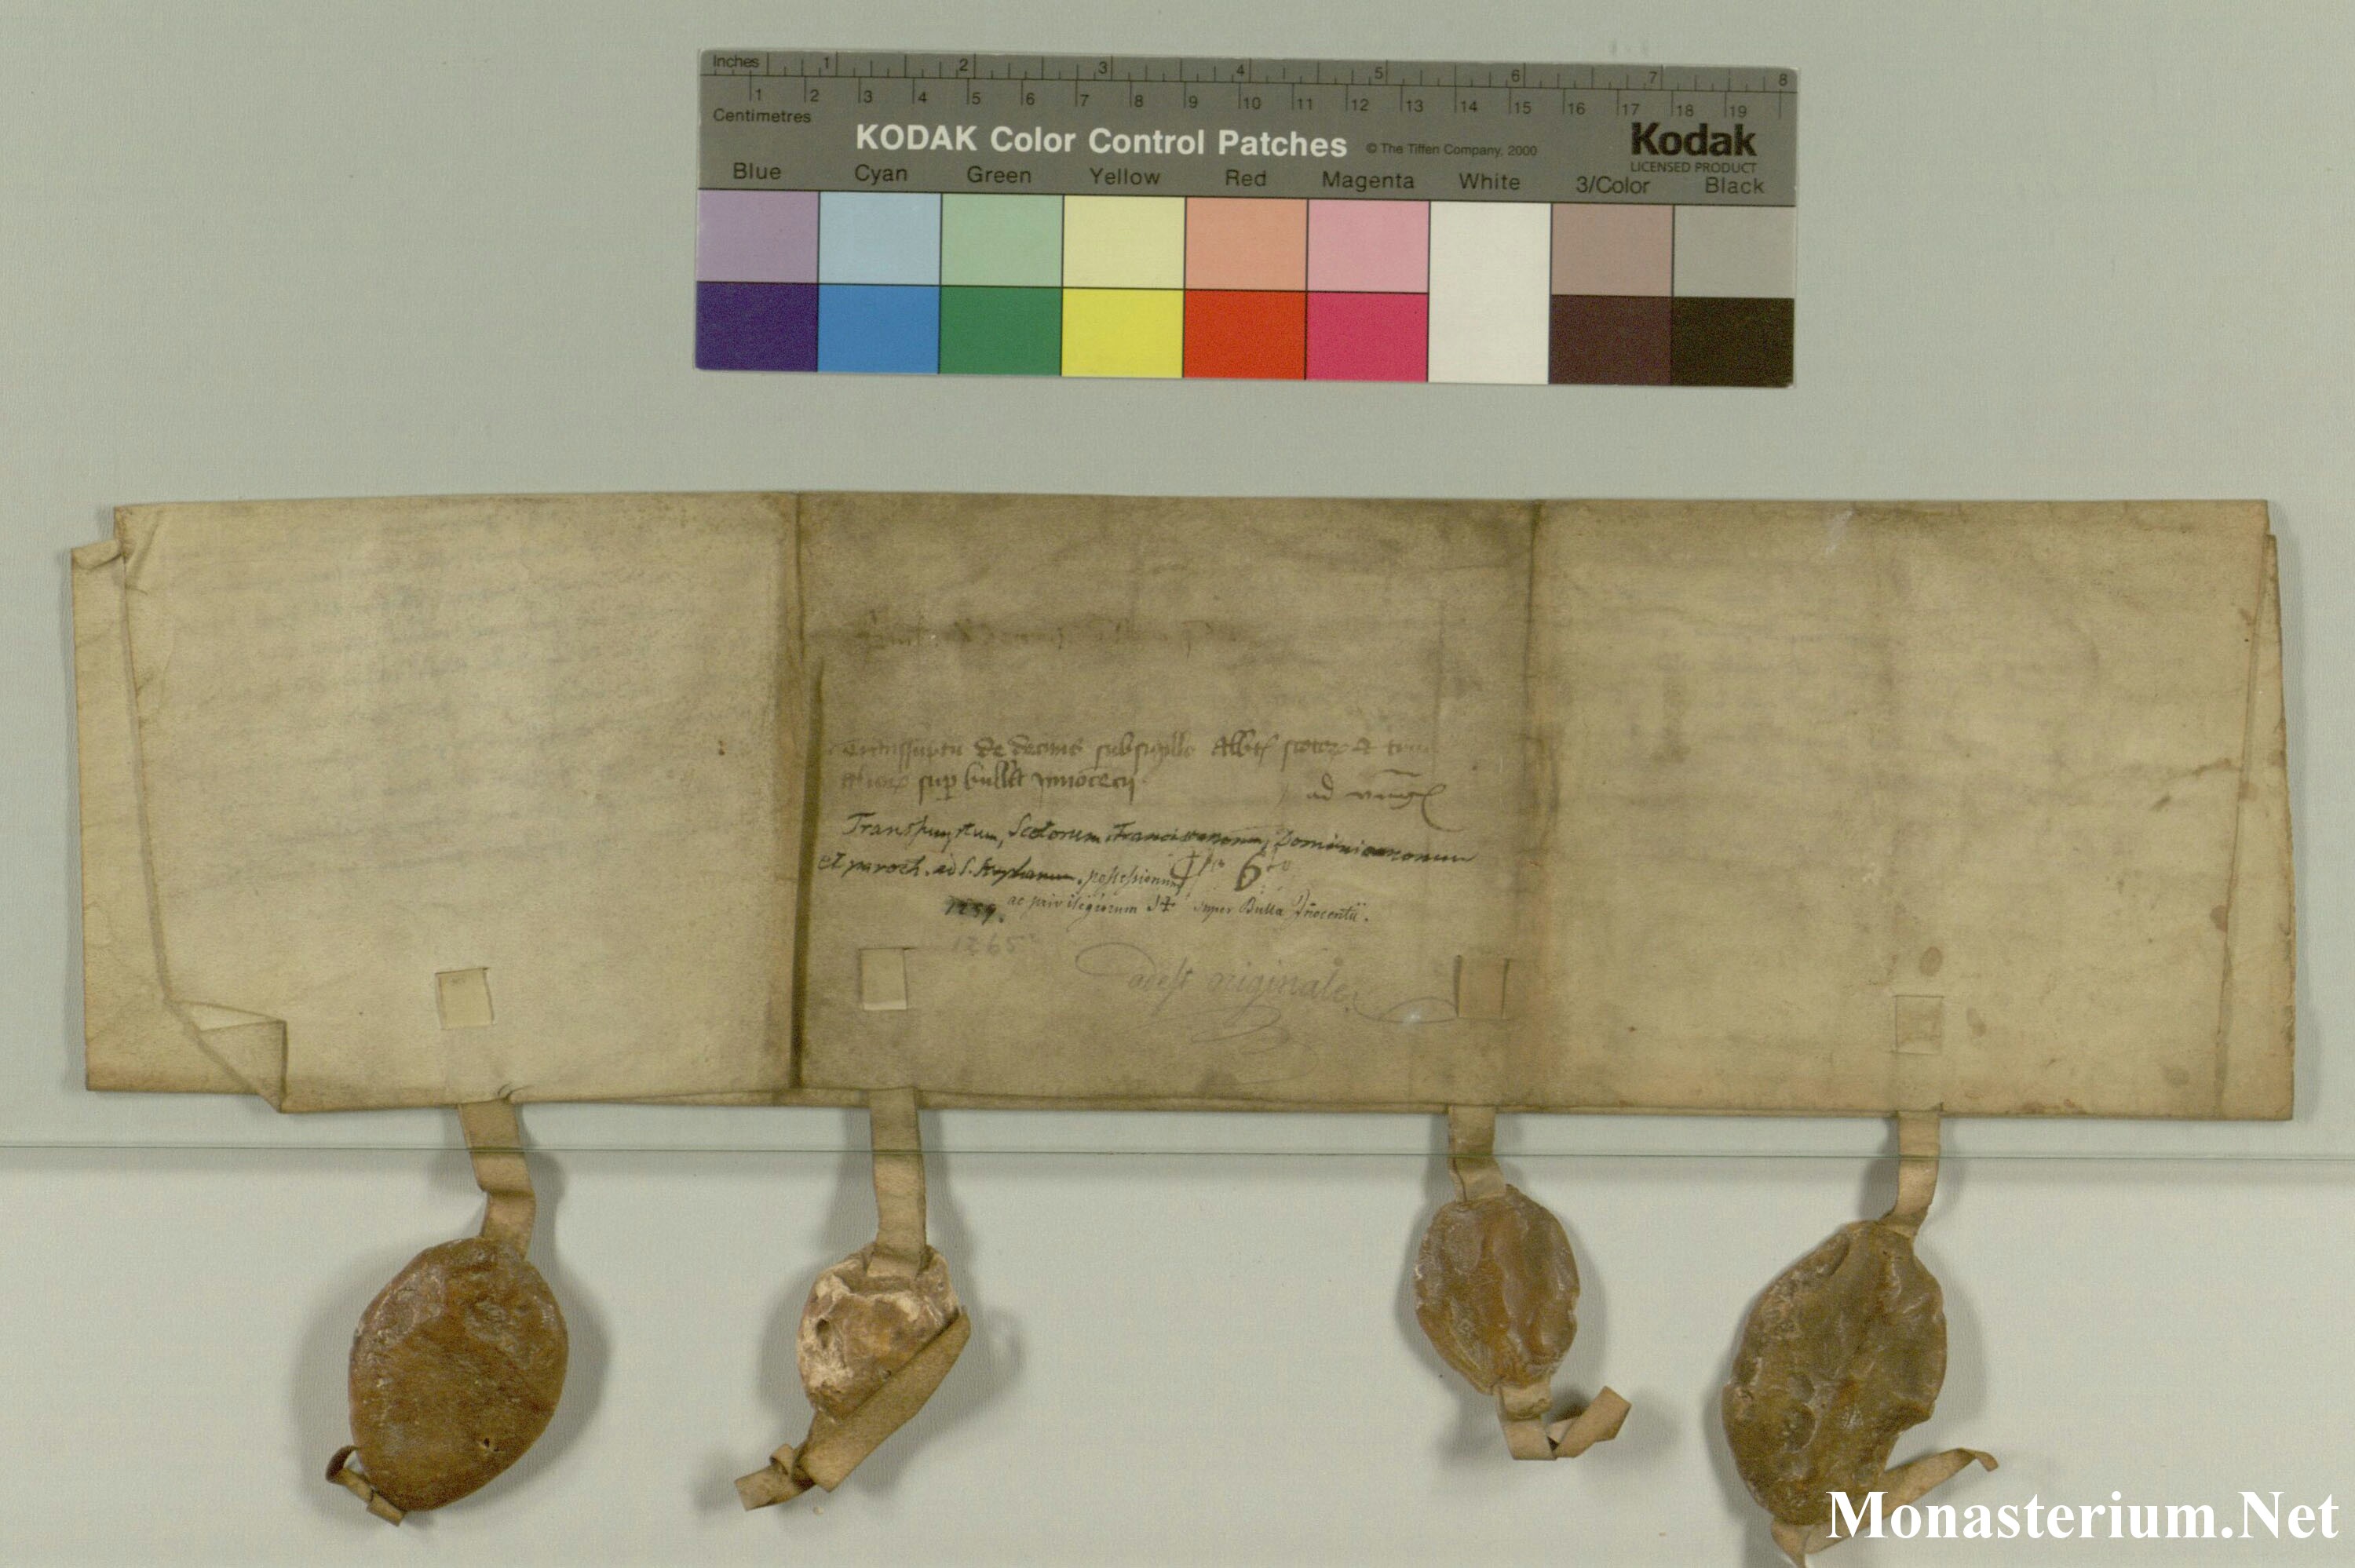 Inches 1 2 3 4 5 6 7 8
1 2 3 4 5 6 7 8 9 10 11 12 13 14 15 16 17 18 19
Centimetres
KODAK Color Control Patches © The Tiffen Company, 2000 Kodak
LICENSED PRODUCT
Blue Cyan Green Yellow Red Magenta White 3/Color Black
de decimis sub sigillo Abbtis scotor et
sup bullā Innocecij
ad
Transsumptum, Scotorum, Franciscanorum, Dominicanorum
et paroch. ad S. Stephanum. possessionum 6to
1259. ac privilegiorum super Bulla Inocentii.
1265
adest originale
Monasterium.Net